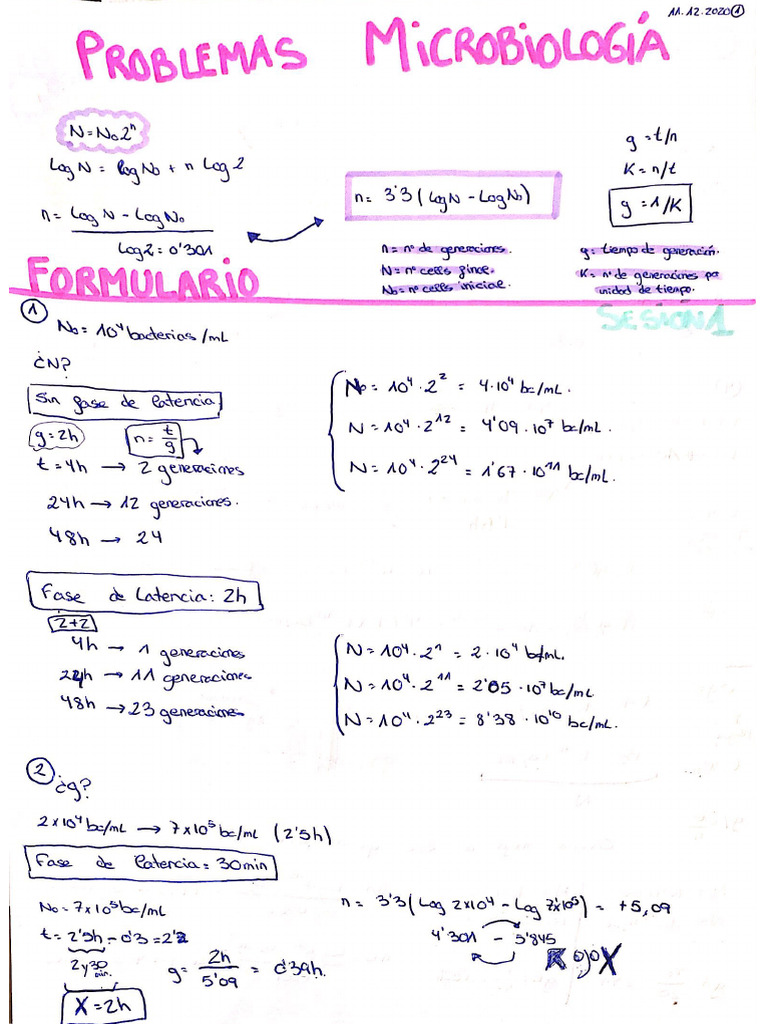 11.12.2020 1
PROBLEMAS MICROBIOLOGÍA
N=No2ⁿ
Log N = log No + n Log 2
n = Log N - Log No
Log 2 = 0'301
n = 3'3 (Log N - Log No)
g = t/n
K = n/t
g = 1/K
n = nº de generaciones.
N = nº cells final.
No = nº cells inicial.
g = tiempo de generación.
K = nº de generaciones po
unidad de tiempo.
FORMULARIO
SESION 1
1
No = 10⁴ bacterias/mL
¿N?
Sin fase de latencia
g = 2h n = t/g
t = 4h → 2 generaciones
24h → 12 generaciones.
48h → 24
No = 10⁴ · 2² = 4·10⁴ bc/mL.
N = 10⁴ · 2¹² = 4'09 · 10⁷ bc/mL.
N = 10⁴ · 2²⁴ = 1'67 · 10¹¹ bc/mL.
Fase de Latencia: 2h
2+2
4h → 1 generaciones
24h → 11 generaciones
48h → 23 generaciones
N = 10⁴ · 2¹ = 2 · 10⁴ bc/mL.
N = 10⁴ · 2¹¹ = 2'05 · 10⁷ bc/mL.
N = 10⁴ · 2²³ = 8'38 · 10¹⁰ bc/mL.
2
¿g?
2x10⁴ bc/mL → 7x10⁵ bc/mL (2'5h)
Fase de latencia = 30min
No = 7x10⁵ bc/mL
t = 2'5h - 0'3 = 2'2
2 y 30
min.
X = 2h
g = 2h/5'09 = 0'39h.
n = 3'3 (Log 2x10⁴ - Log 7x10⁵) = +5,09
4'301 - 5'845
ojo X